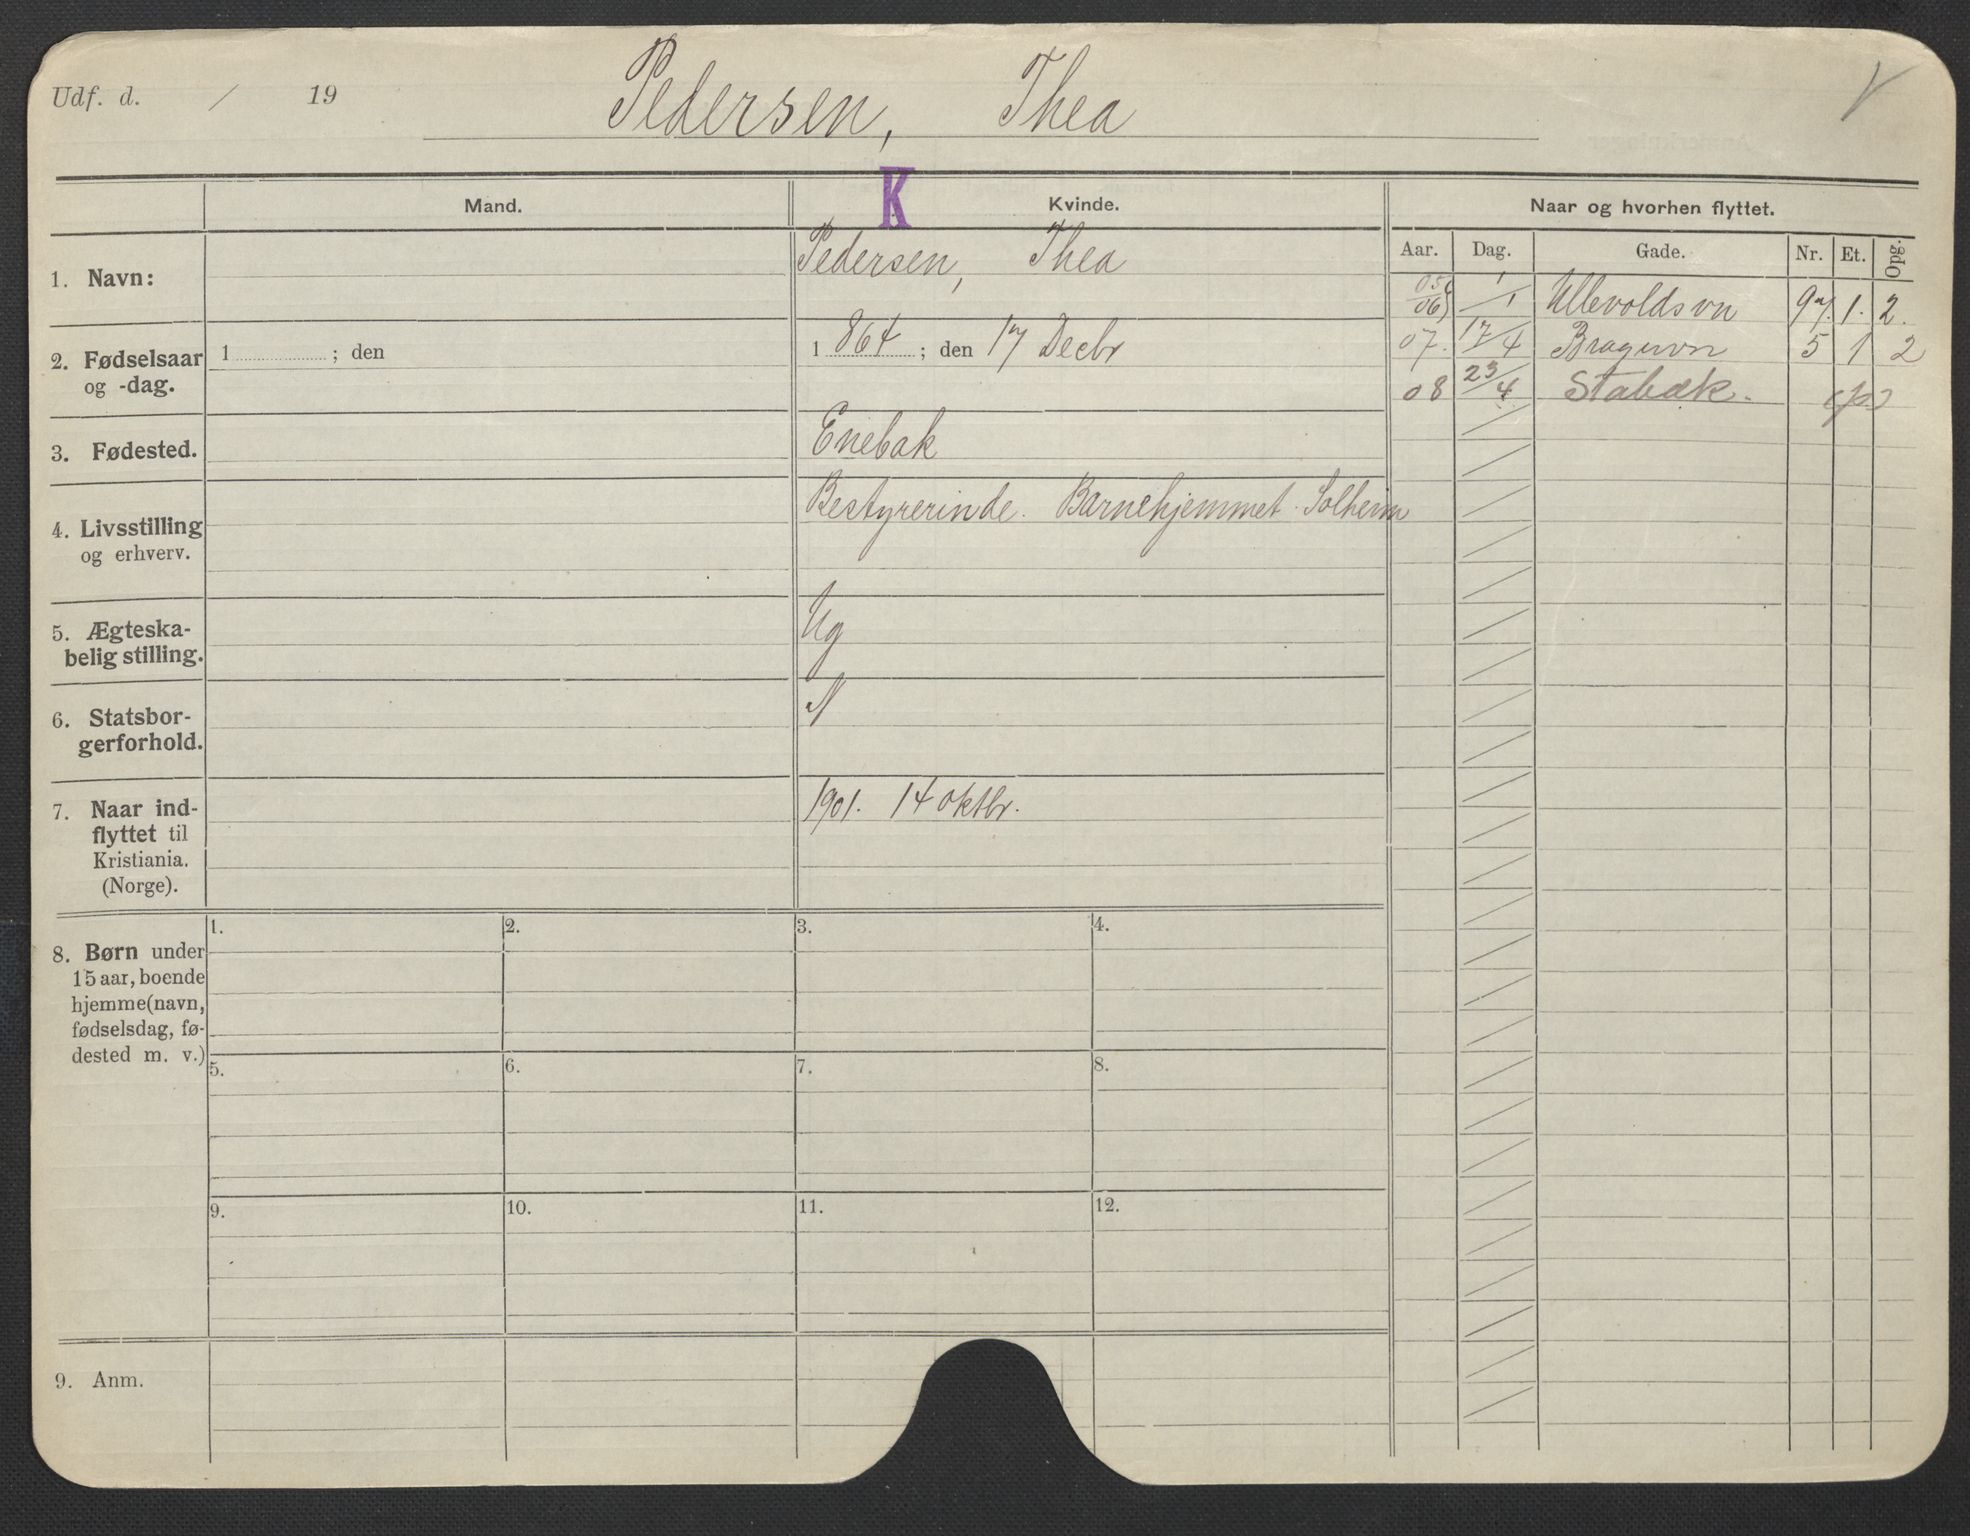 Udf. d. / 19
Pedersen, Thea
K
Mand. Kvinde. Naar og hvorhen flyttet.
Aar. Dag. Gade. Nr. Et. Opg.
1. Navn: Pedersen, Thea
05/06 1/1 Ullevoldsvn 97. 1. 2.
07. 17/4 Bragesvn 5 1 2
08 23/4 Stabæk.
2. Fødselsaar 1 ; den 1 864 ; den 17 Decbr
og -dag.
3. Fødested. Enebak
4. Livsstilling Bestyrerinde. Barnehjemmet Solheim
og erhverv.
5. Ægteska- Ug
belig stilling.
6. Statsbor- N
gerforhold.
7. Naar ind- 1901. 14 oktbr.
flyttet til
Kristiania.
(Norge).
8. Børn under
15 aar, boende
hjemme (navn,
fødselsdag, fø-
dested m. v.)
1. 2. 3. 4.
5. 6. 7. 8.
9. 10. 11. 12.
9. Anm.